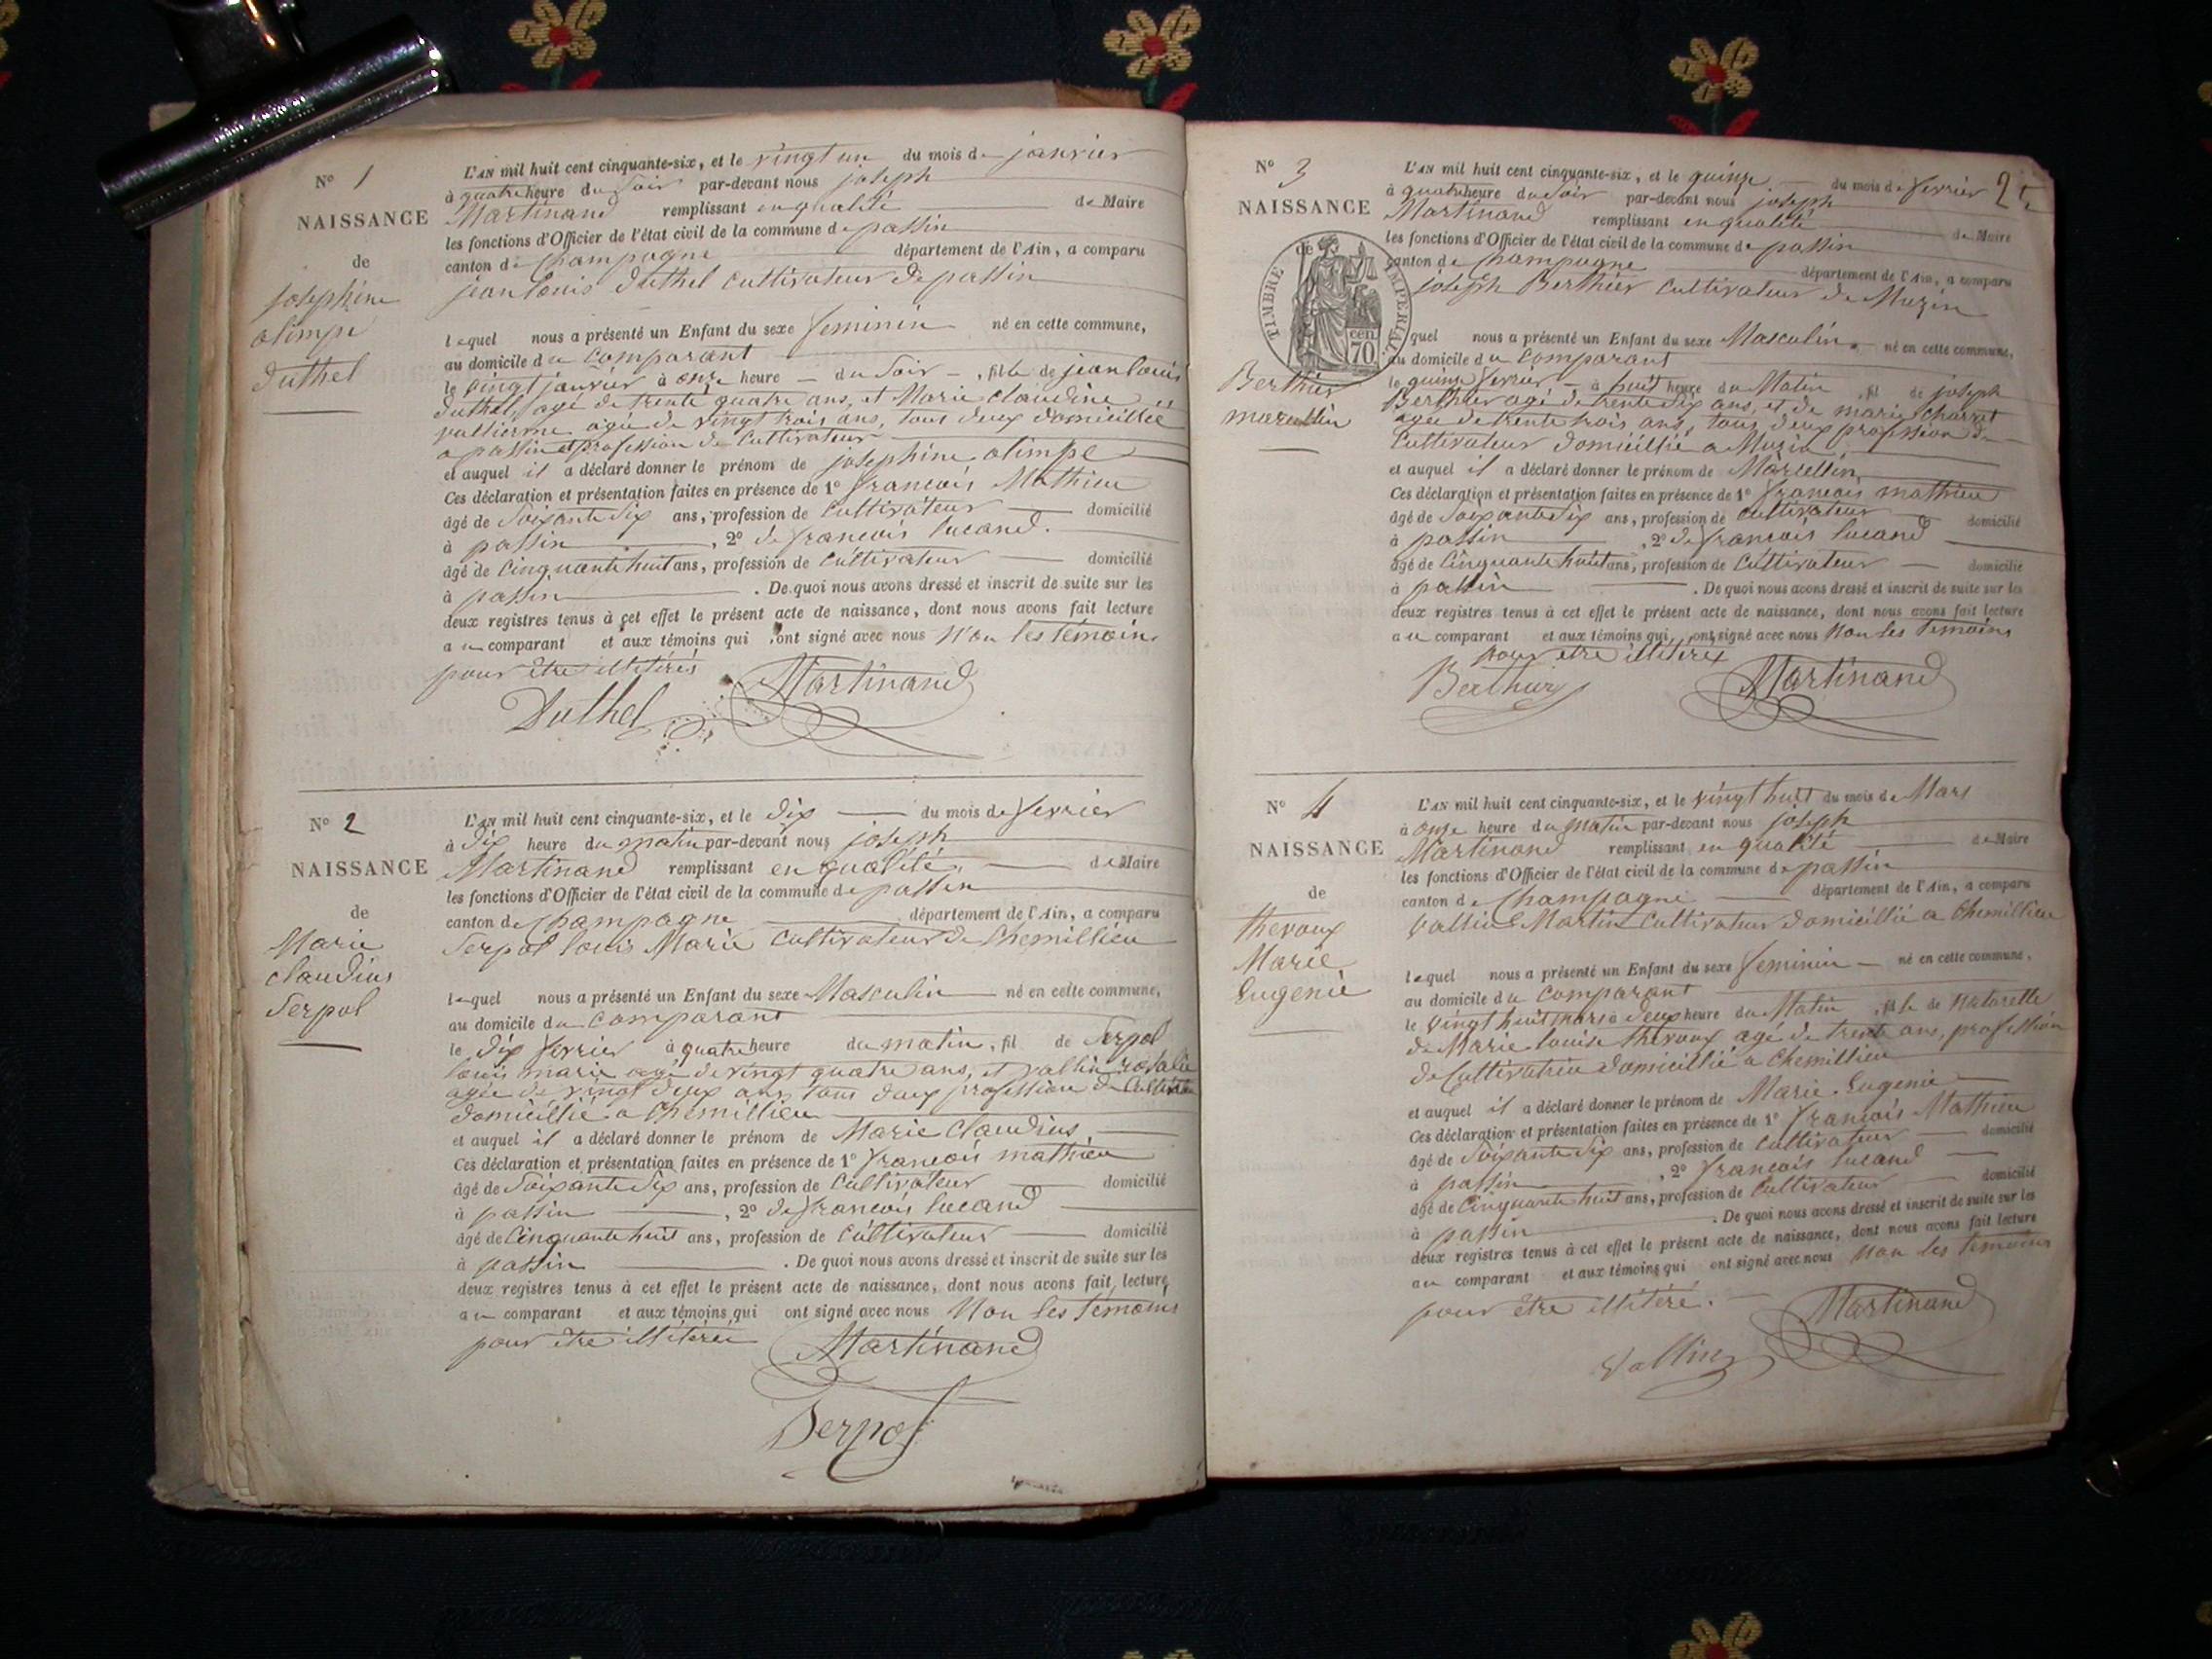 N° 1
NAISSANCE
de
josephine
olimpe
Duthel
L'AN mil huit cent cinquante-six, et le vingt un du mois de janvier
à quatre heure du Soir par-devant nous joseph
Martinand remplissant en qualité de Maire
les fonctions d'Officier de l'état civil de la commune de passin
canton de Champagne département de l'Ain, a comparu
jean louis Duthel Cultivateur de passin
lequel nous a présenté un Enfant du sexe feminin né en cette commune,
au domicile du Comparant
le vingt janvier à onze heure du Soir, fille de jean louis
Duthel, agé de trente quatre ans, et Marie claudine
agée de vingt trois ans, tous deux domicillié
a passin et profession de Cultivateur
et auquel il a déclaré donner le prénom de josephine olimpe
Ces déclaration et présentation faites en présence de 1° francois Mathieu
âgé de Soixante Six ans, profession de Cultivateur domicilié
à passin, 2° de francois lucand.
âgé de Cinquante huit ans, profession de Cultivateur domicilié
à passin. De quoi nous avons dressé et inscrit de suite sur les
deux registres tenus à cet effet le présent acte de naissance, dont nous avons fait lecture
au comparant et aux témoins qui ont signé avec nous Non les témoins
pour être illitérés
Martinand
Duthel
N° 2
NAISSANCE
de
Marie
claudius
Serpol
L'AN mil huit cent cinquante-six, et le Dix du mois de fevrier
à Dix heure du matin par-devant nous joseph
Martinand remplissant en qualité de Maire
les fonctions d'Officier de l'état civil de la commune de passin
canton de Champagne département de l'Ain, a comparu
Serpol louis Marie Cultivateur de Chemillieu
lequel nous a présenté un Enfant du sexe Masculin né en cette commune,
au domicile du Comparant
le Dix fevrier à quatre heure du matin, fil de Serpol
louis marie agé de vingt quatre ans, et vallin rosalie
agée de vingt deux ans tous deux profession de Cultivateur
domicillié a Chemillieu
et auquel il a déclaré donner le prénom de Marie Claudius
Ces déclaration et présentation faites en présence de 1° francois mathieu
âgé de Soixante Six ans, profession de Cultivateur domicilié
à passin, 2° de francois lucand
âgé de Cinquante huit ans, profession de Cultivateur domicilié
à passin. De quoi nous avons dressé et inscrit de suite sur les
deux registres tenus à cet effet le présent acte de naissance, dont nous avons fait lecture
au comparant et aux témoins qui ont signé avec nous Non les témoins
pour être illitérés
Martinand
Serpol
N° 3
NAISSANCE
de
TIMBRE IMPERIAL
70 cen
Berthier
marcellin
L'AN mil huit cent cinquante-six, et le quinze du mois de fevrier
à quatre heure du Soir par-devant nous joseph
Martinand remplissant en qualité de Maire
les fonctions d'Officier de l'état civil de la commune de passin
canton de Champagne département de l'Ain, a comparu
joseph Berthier Cultivateur de Muzin
quel nous a présenté un Enfant du sexe Masculin né en cette commune,
au domicile du Comparant
le quinze fevrier à huit heure du Matin, fil de joseph
Berthier agé de trente Six ans, et de marie
agée de trente trois ans, tous deux profession de
Cultivateur domicillié a Muzin
et auquel il a déclaré donner le prénom de Marcellin
Ces déclaration et présentation faites en présence de 1° francois mathieu
âgé de Soixante Six ans, profession de Cultivateur domicilié
à passin, 2° de francois lucand
âgé de Cinquante huit ans, profession de Cultivateur domicilié
à passin. De quoi nous avons dressé et inscrit de suite sur les
deux registres tenus à cet effet le présent acte de naissance, dont nous avons fait lecture
au comparant et aux témoins qui ont signé avec nous Non les témoins
pour etre illitérés
Berthier Martinand
N° 4
NAISSANCE
de
thevoux
Marie
Eugenie
L'AN mil huit cent cinquante-six, et le vingt huit du mois de Mars
à onze heure du Matin par-devant nous joseph
Martinand remplissant en qualité de Maire
les fonctions d'Officier de l'état civil de la commune de passin
canton de Champagne département de l'Ain, a comparu
Vallin Martin Cultivateur domicillié a Chemillieu
lequel nous a présenté un Enfant du sexe feminin né en cette commune,
au domicile du Comparant
le vingt huit mars à deux heure du Matin, fille de naturelle
de Marie louise thevoux agé de trente ans, profession
de Cultivatrice domicillié a Chemillieu
et auquel il a déclaré donner le prénom de Marie Eugenie
Ces déclaration et présentation faites en présence de 1° francois Mathieu
âgé de Soixante Six ans, profession de Cultivateur domicilié
à passin, 2° francois lucand
âgé de Cinquante huit ans, profession de Cultivateur domicilié
à passin. De quoi nous avons dressé et inscrit de suite sur les
deux registres tenus à cet effet le présent acte de naissance, dont nous avons fait lecture
au comparant et aux témoins qui ont signé avec nous Non les temoins
pour être illitéré.
Martinand
Vallin